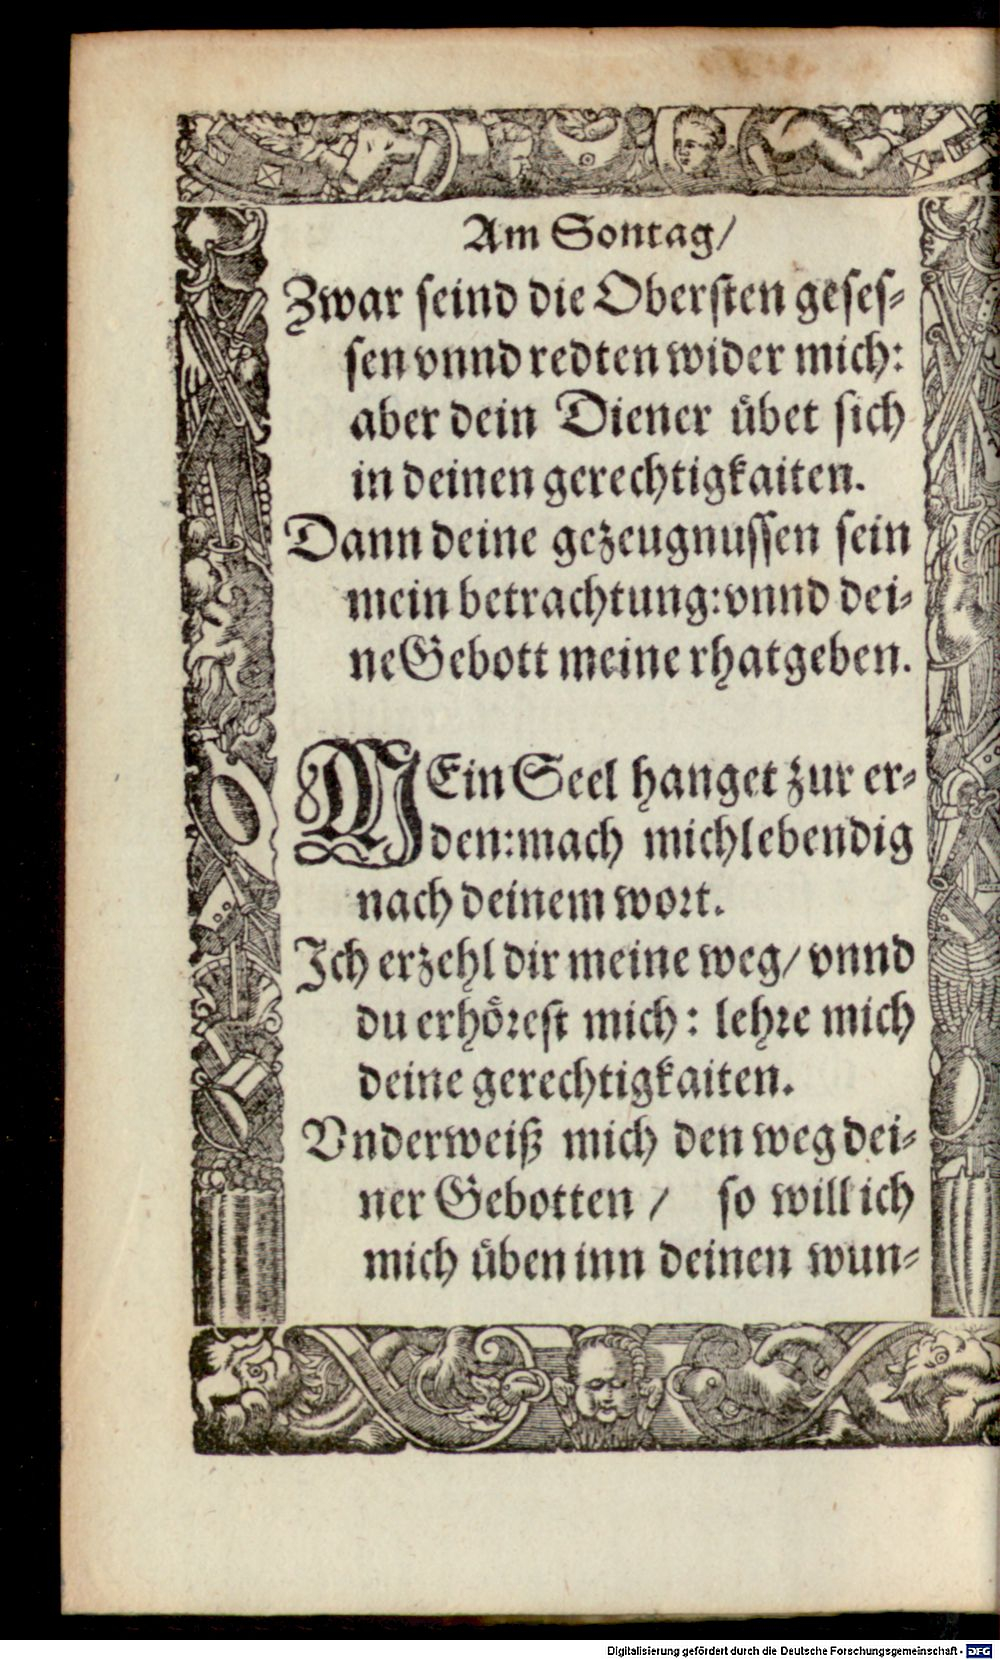 Am Sontag/
Zwar seind die Obersten geses⸗
sen vnnd redten wider mich:
aber dein Diener übet sich
in deinen gerechtigkaiten.
Dann deine gezeugnussen sein
mein betrachtung: vnnd dei⸗
ne Gebott meine rhatgeben.
MEin Seel hanget zur er⸗
den: mach mich lebendig
nach deinem wort.
Ich erzehl dir meine weg/ vnnd
du erhörest mich: lehre mich
deine gerechtigkaiten.
Vnderweiß mich den weg dei⸗
ner Gebotten / so will ich
mich üben inn deinen wun⸗
Digitalisierung gefördert durch die Deutsche Forschungsgemeinschaft - DFG